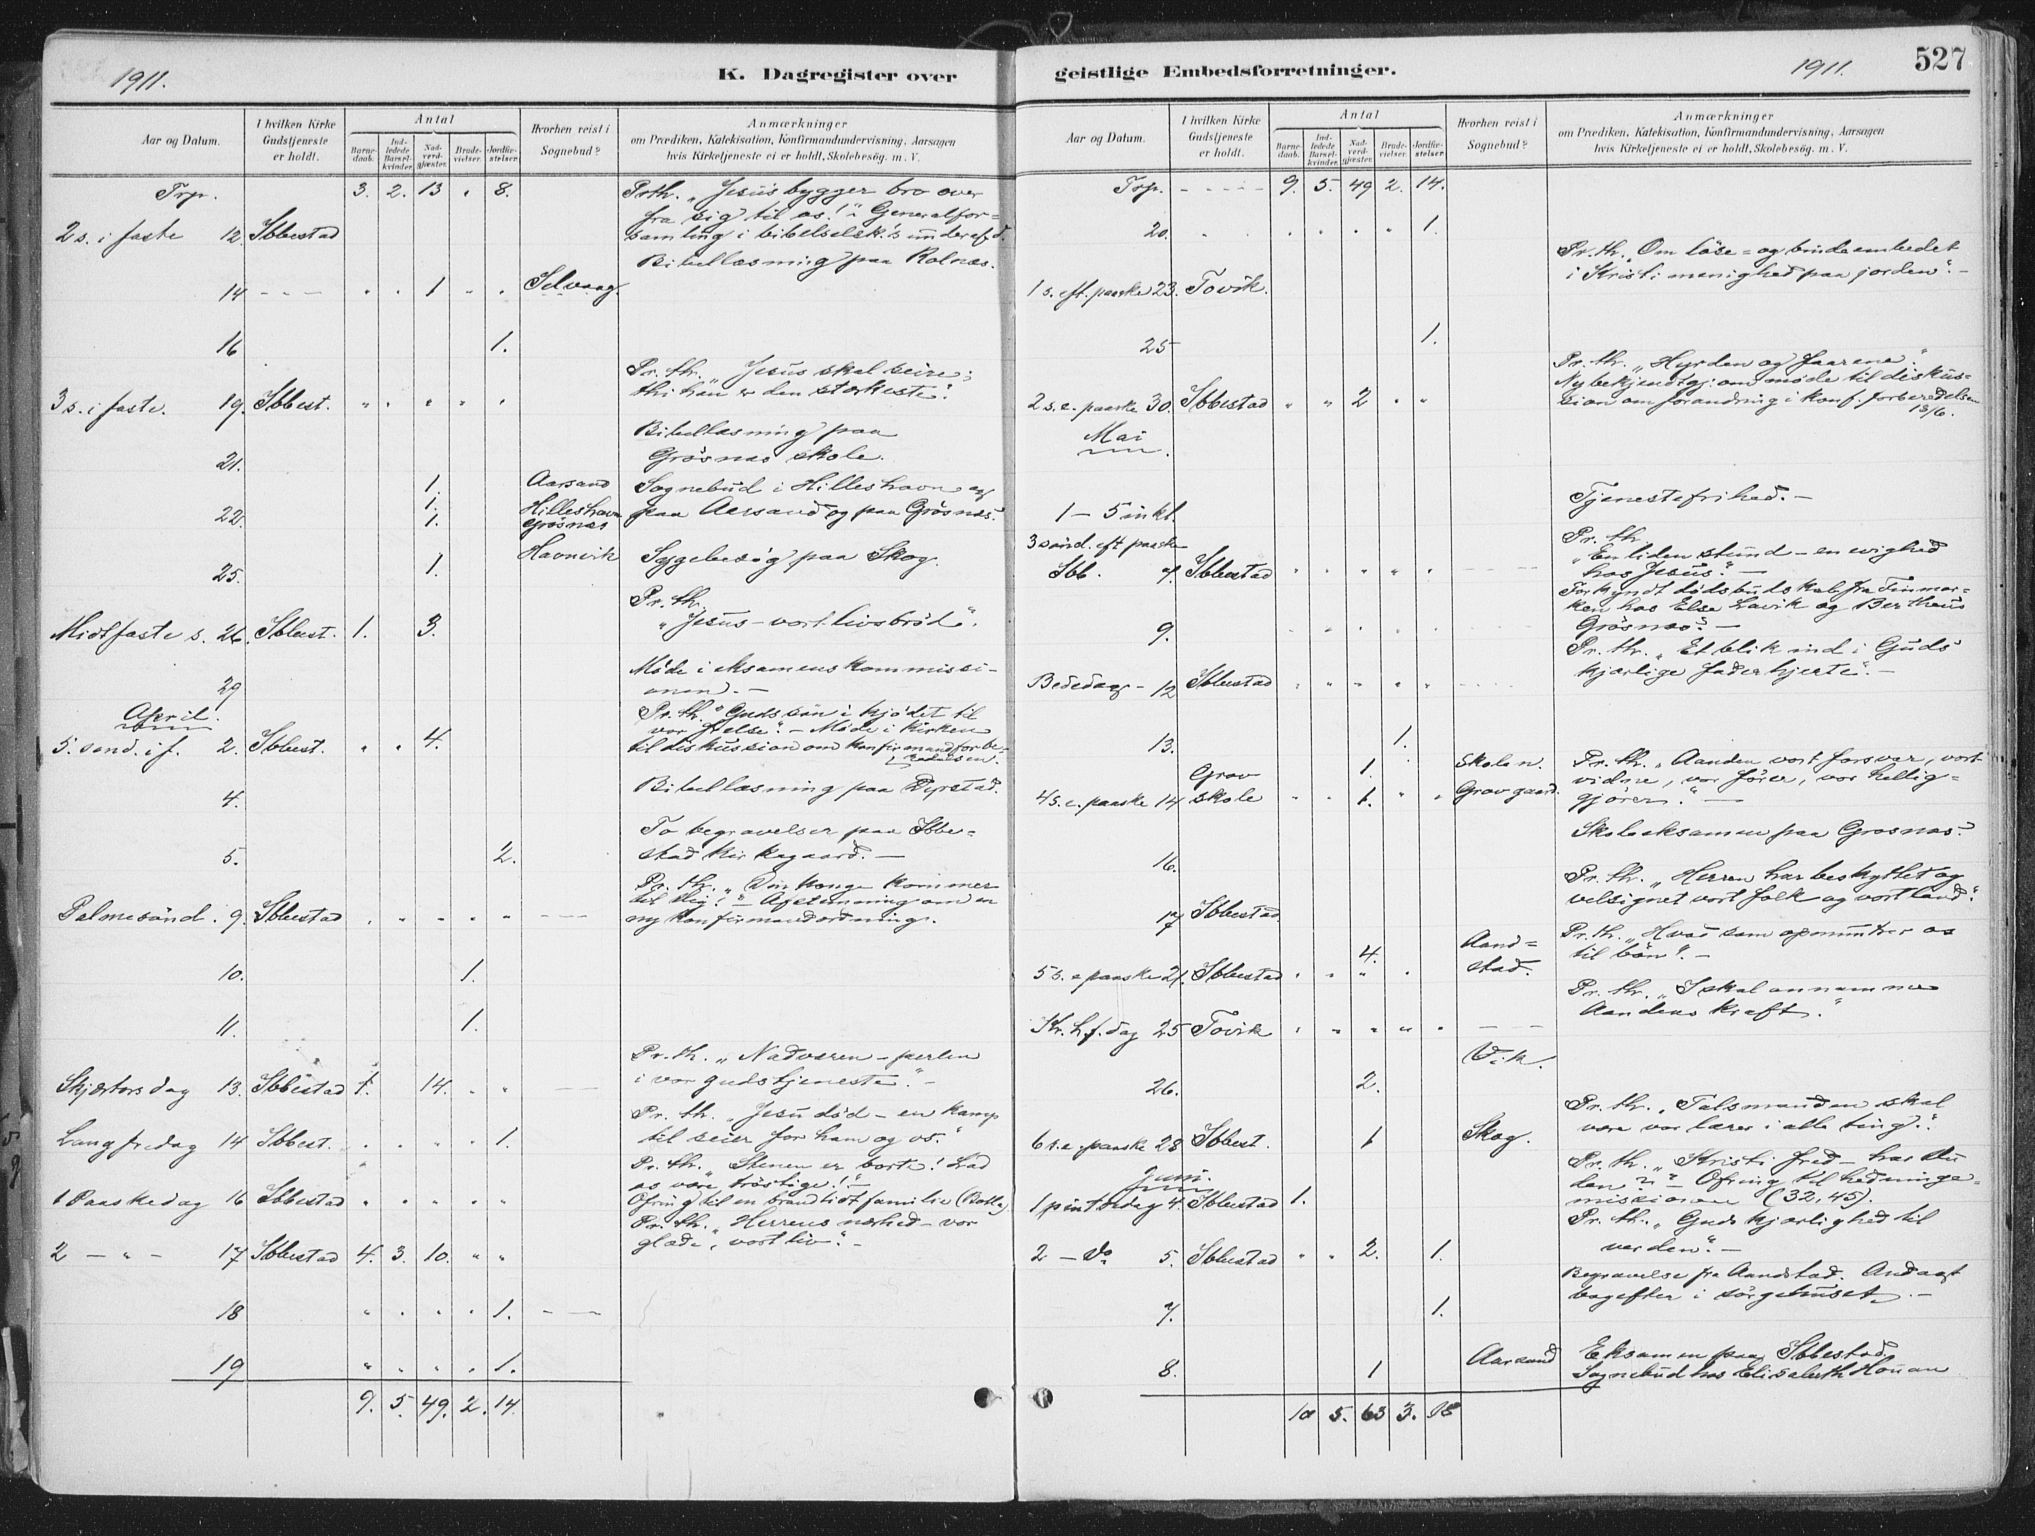 1911.
K. Dagregister over
Aar og Datum.
I hvilken Kirke Gudstjeneste er holdt.
Antal
Barne-daab.
Ind-ledede Barsel-kvinder.
Nad-verd-gjæster.
Brude-vielser.
Jordfæ-stelser.
Hvorhen reist i Sognebud?
Anmærkninger
om Prædiken, Katekisation, Konfirmandundervisning, Aarsagen
hvis Kirketjeneste ei er holdt, Skolebesøg. m. V.
Trp. 3. 2. 13 " 8. Pr th. „Jesus bygger bro over
fra sig til os!" Generalfor=
2 s. i faste 12. Ibbestad samling i bibelselsk.'s underafd.
Bibellæsning paa Rolnæs.
14 - - - " " 1 " " Selvaag.
16 1.
Pr. th. „Jesus skal seire;
thi han er den stærkeste".
3 s. i faste. 19. Ibbest. " " " " "
Bibellæsning paa
21. Grøsnæs skole.
1. Aarsand Sognebud i Hilleshavn og
22. 1. Hilleshavn paa Aarsand og paa Grøsnæs.
1. Grøsnæs
25. 1. Havnvik Sygebesøg paa Skog.
Pr. th.
Midtfaste s. 26. Ibbest. 1. 3. „Jesus - vort livsbrød".
Møde i eksamenskommissi-
29 onen. -
April.
Pr. th. „Guds søn i kjødet til
vor frelse". - Møde i kirken
5. sønd. i f. 2. Ibbest. " " 4. til diskussion om konfirmandforbe-
redelsen.
4. Bibellæsning paa Dyrstad.
To begravelser paa Ibbe-
5. 2. stad kirkegaard. -
Pr. th. „Din konge kommer
til dig!" - Afstemning om en
Palmesønd. 9. Ibbestad " " " " " - - ny konfirmandordning.
10. 1.
11. 1.
Pr. th. „Nadveren - perlen
Skjærtorsdag 13. Ibbestad 1. 14. " " - - i vor gudstjeneste". -
Pr. th. „Jesu død - en kamp
Langfredag 14 Ibbest. " " " " 1. til seier for ham og os."
Pr. th. „Stenen er borte! Lad
os være trøstige!" -
1 Paaskedag 16 Ibbestad " " " " " Ofring til en brandlidt familie
Pr. th. „Herrens nærhed - vor
2 - " - 17 Ibbestad 4. 3. 10. " " glæde, vort liv". -
18 " " " " 1. - -
19 " " " " 1.
9. 5. 49. 2. 14.
geistlige Embedsforretninger.
1911.
527
Aar og Datum.
I hvilken Kirke Gudstjeneste er holdt.
Antal
Barne-daab.
Ind-ledede Barsel-kvinder.
Nad-verd-gjæster.
Brude-vielser.
Jordfæ-stelser.
Hvorhen reist i Sognebud?
Anmærkninger
om Prædiken, Katekisation, Konfirmandundervisning, Aarsagen
hvis Kirketjeneste ei er holdt, Skolebesøg. m. V.
Trp. - - - - 9. 5. 49 2. 14.
20. " " " " " 1.
Pr. th. „Om løse- og bindeembedet
i Kristi menighed paa jorden". -
1 s. eft. paaske 23. Tovik.
25 1.
Pr. th. „Hyrden og faarene".
Ny bekjendtgj. om møde til diskus-
2 s. e. paaske 30. Ibbestad " " 2 " " sion om forandring i konf. forberedelsen
18/6.
Mai
1 - 5 inkl. Tjenestefrihed. -
3 sønd. eft paaske Pr. th
„En liden stund - en evighed
Ibb. 7. Ibbestad " " " " " - - - hos Jesus". -
Forkyndt dødsbudskab fra Finmar-
ken hos Else Lavik og Bertheus
9. " " " " Grøsnæs. -
Pr. th. „Et blik ind i Guds
Bededag - 12 Ibbestad " " " " " kjærlige faderhjerte". -
13. 1.
Grov 1. Skolen. Pr. th. „Aanden vort forsvar, vort
vidne, vor fører, vor hellig-
4 s. e. paaske 14 skole " " 1. " " Grovgaard. gjører." -
16. Skoleeksamen paa Grøsnæs.
Pr. th. „Herren har beskyttet og
17 Ibbestad velsignet vort folk og vort land".
4. Aand= Pr. th. „Hvad som opmuntrer os
5 s. e paaske 21. Ibbestad " " " " stad. til bøn". -
Pr. th. „I skal annamme
Kr. h f. dag 25 Tovik " " " " " - - Aandens kraft."
26. 2. Vik.
Pr. th. „Talsmanden skal
6 s. e. paaske 28 Ibbest. 1 Skog. være vor lærer i alle ting".
Juni. Pr. th. „Kristi fred - har du
den?" - Ofring til hedninge-
1 pintsedag 4. Ibbestad 1. missionen (32,45).
Pr. th. „Guds kjærlighed til
2 - do 5. Ibbestad " " 2. 1. verden". -
Begravelse fra Aandstad. Andagt
7. 1. bagefter i sørgehuset. -
Eksamen paa Ibbestad.
8. 1 Aarsand Sognebud hos Elisabeth
10 5. 63 3. 18